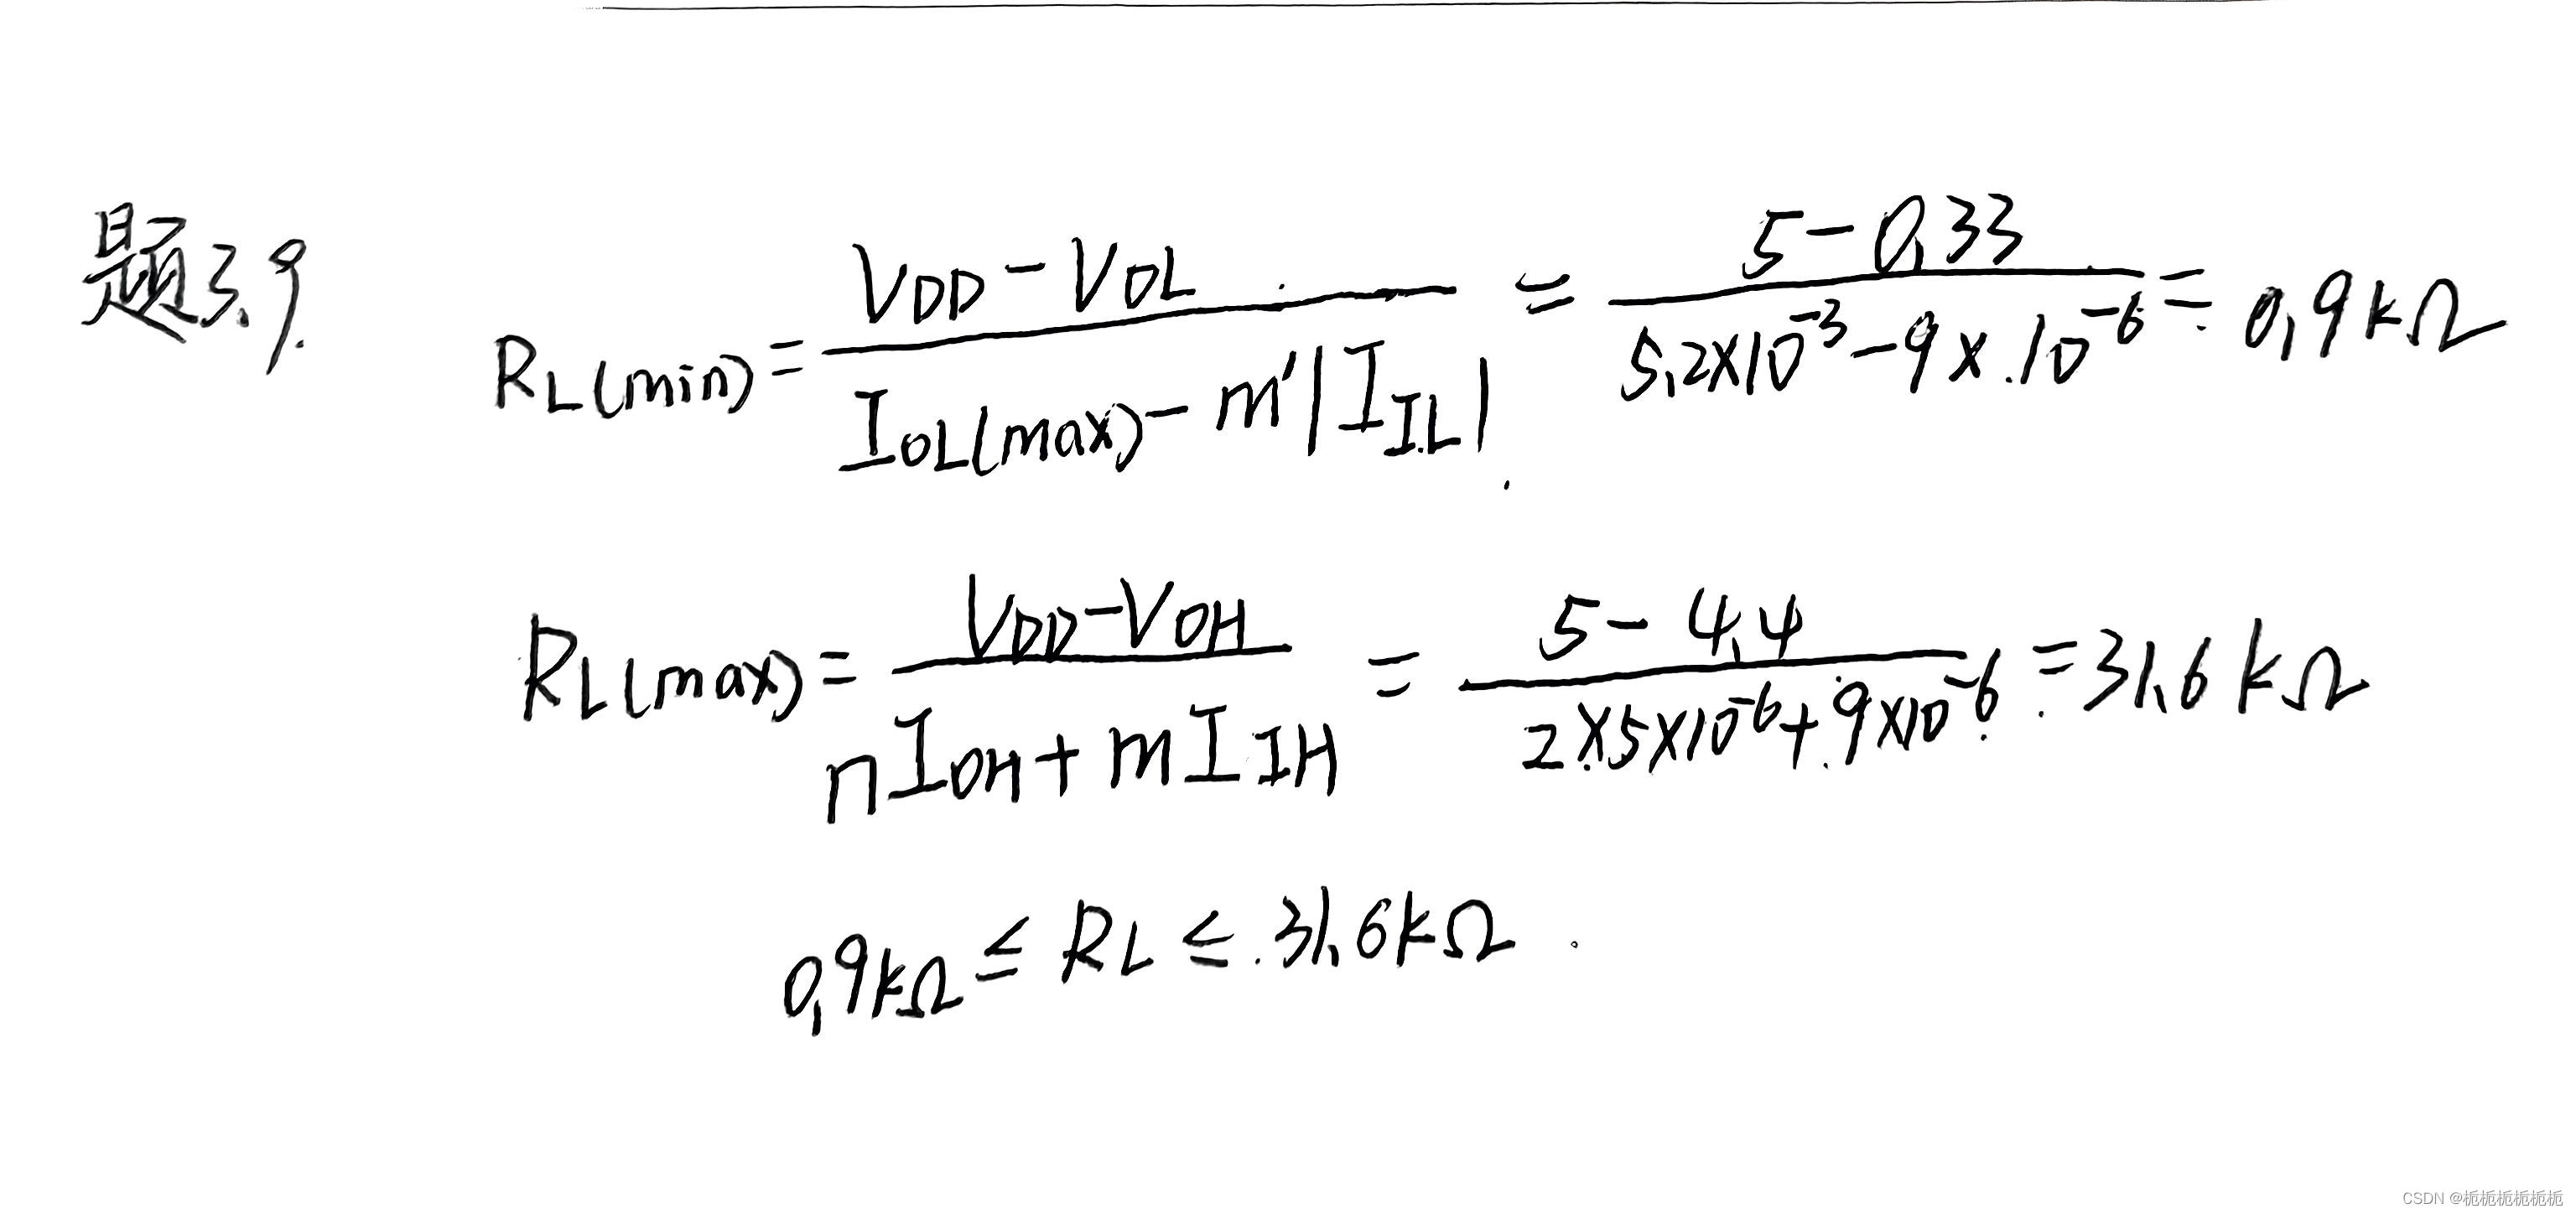 题3.9.
R_L(min) = (V_DD - V_OL) / (I_OL(max) - m'|I_IL|) = (5 - 0.33) / (5.2×10^-3 - 9×10^-6) = 0.9kΩ
R_L(max) = (V_DD - V_OH) / (nI_OH + mI_IH) = (5 - 4.4) / (2×5×10^-6 + 9×10^-6) = 31.6kΩ
0.9kΩ ≤ R_L ≤ 31.6kΩ
CSDN @栀栀栀栀栀栀